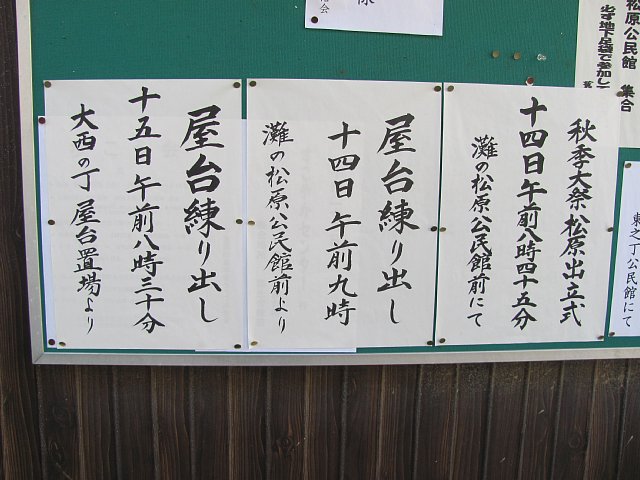 松原公民館 集合
必ず地下足袋で参加し
東之丁公民館にて
秋季大祭松原出立式
十四日午前八時四十五分
灘の松原公民館前にて
屋台練り出し
十四日午前九時
灘の松原公民館前より
屋台練り出し
十五日午前八時三十分
大西の丁 屋台置場より